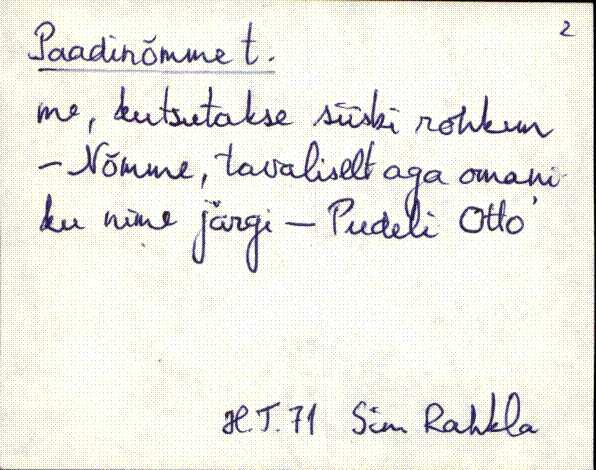 2
Paadinõmme t.
me, kutsutakse siiski rohkem
– Nõmme, tavaliselt aga omani-
ku nime järgi – Pudeli Otto'
H.T. 71 Sim Rahkla